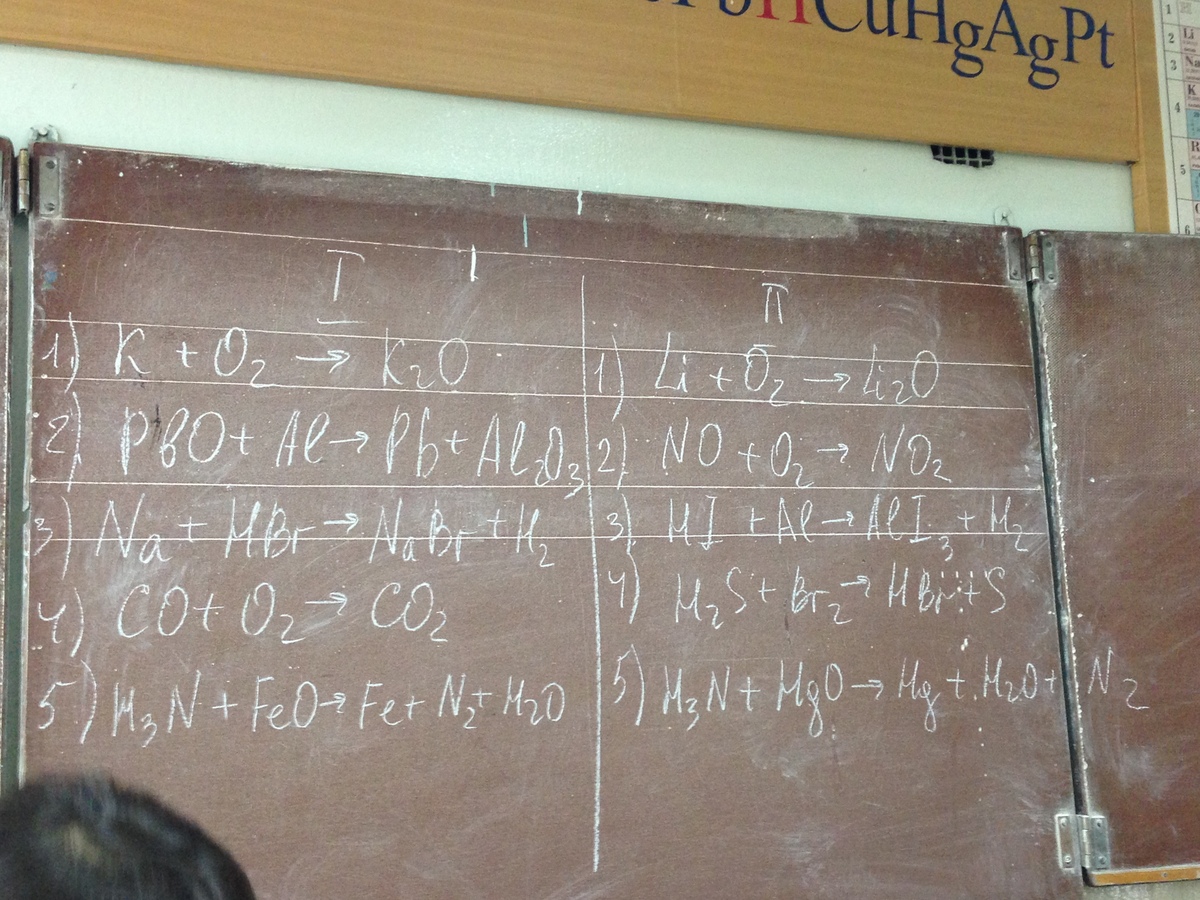 PbHCuHgAgPt
1
2 Li
3 Na
4 K
5 R
6
I
1) K + O₂ → K₂O
2) PbO + Al → Pb + Al₂O₃
3) Na + HBr → NaBr + H₂
4) CO + O₂ → CO₂
5) H₃N + FeO → Fe + N₂ + H₂O
II
1) Li + O₂ → Li₂O
2) NO + O₂ → NO₂
3) HI + Al → AlI₃ + H₂
4) H₂S + Br₂ → HBr + S
5) H₃N + MgO → Mg + H₂O + N₂